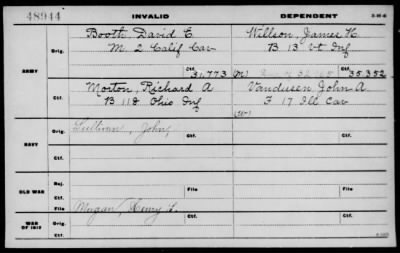 48944 INVALID DEPENDENT
ARMY
Orig. Booth David E Willson, James K
M 2 Calif Cav B 13 Vt Inf
Ctf. 31,773 (M) 35,352
Ctf. Morton, Richard A Vandusen John A
B 118 Ohio Inf F 17 Ill Cav
(W)
NAVY
Orig. Sullivan, John,
Ctf.
OLD WAR
Rej. Ctf.
File File
WAR OF 1812
Orig. Morgan, Henry L. Ctf.
Ctf.